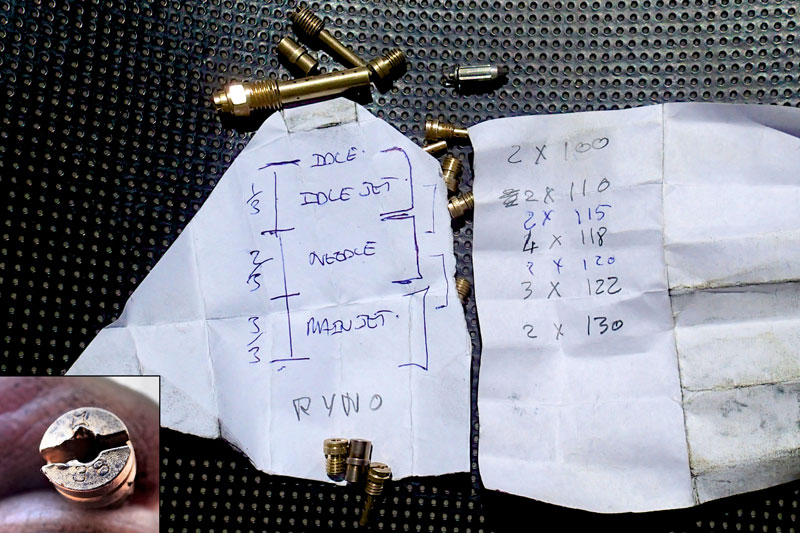 IDLE.
1/3 IDLE JET.
2/3 NEEDLE
3/3 MAIN JET.
RYNO
2 X 100
2 X 110
2 X 115
4 X 118
2 X 120
3 X 122
2 X 130